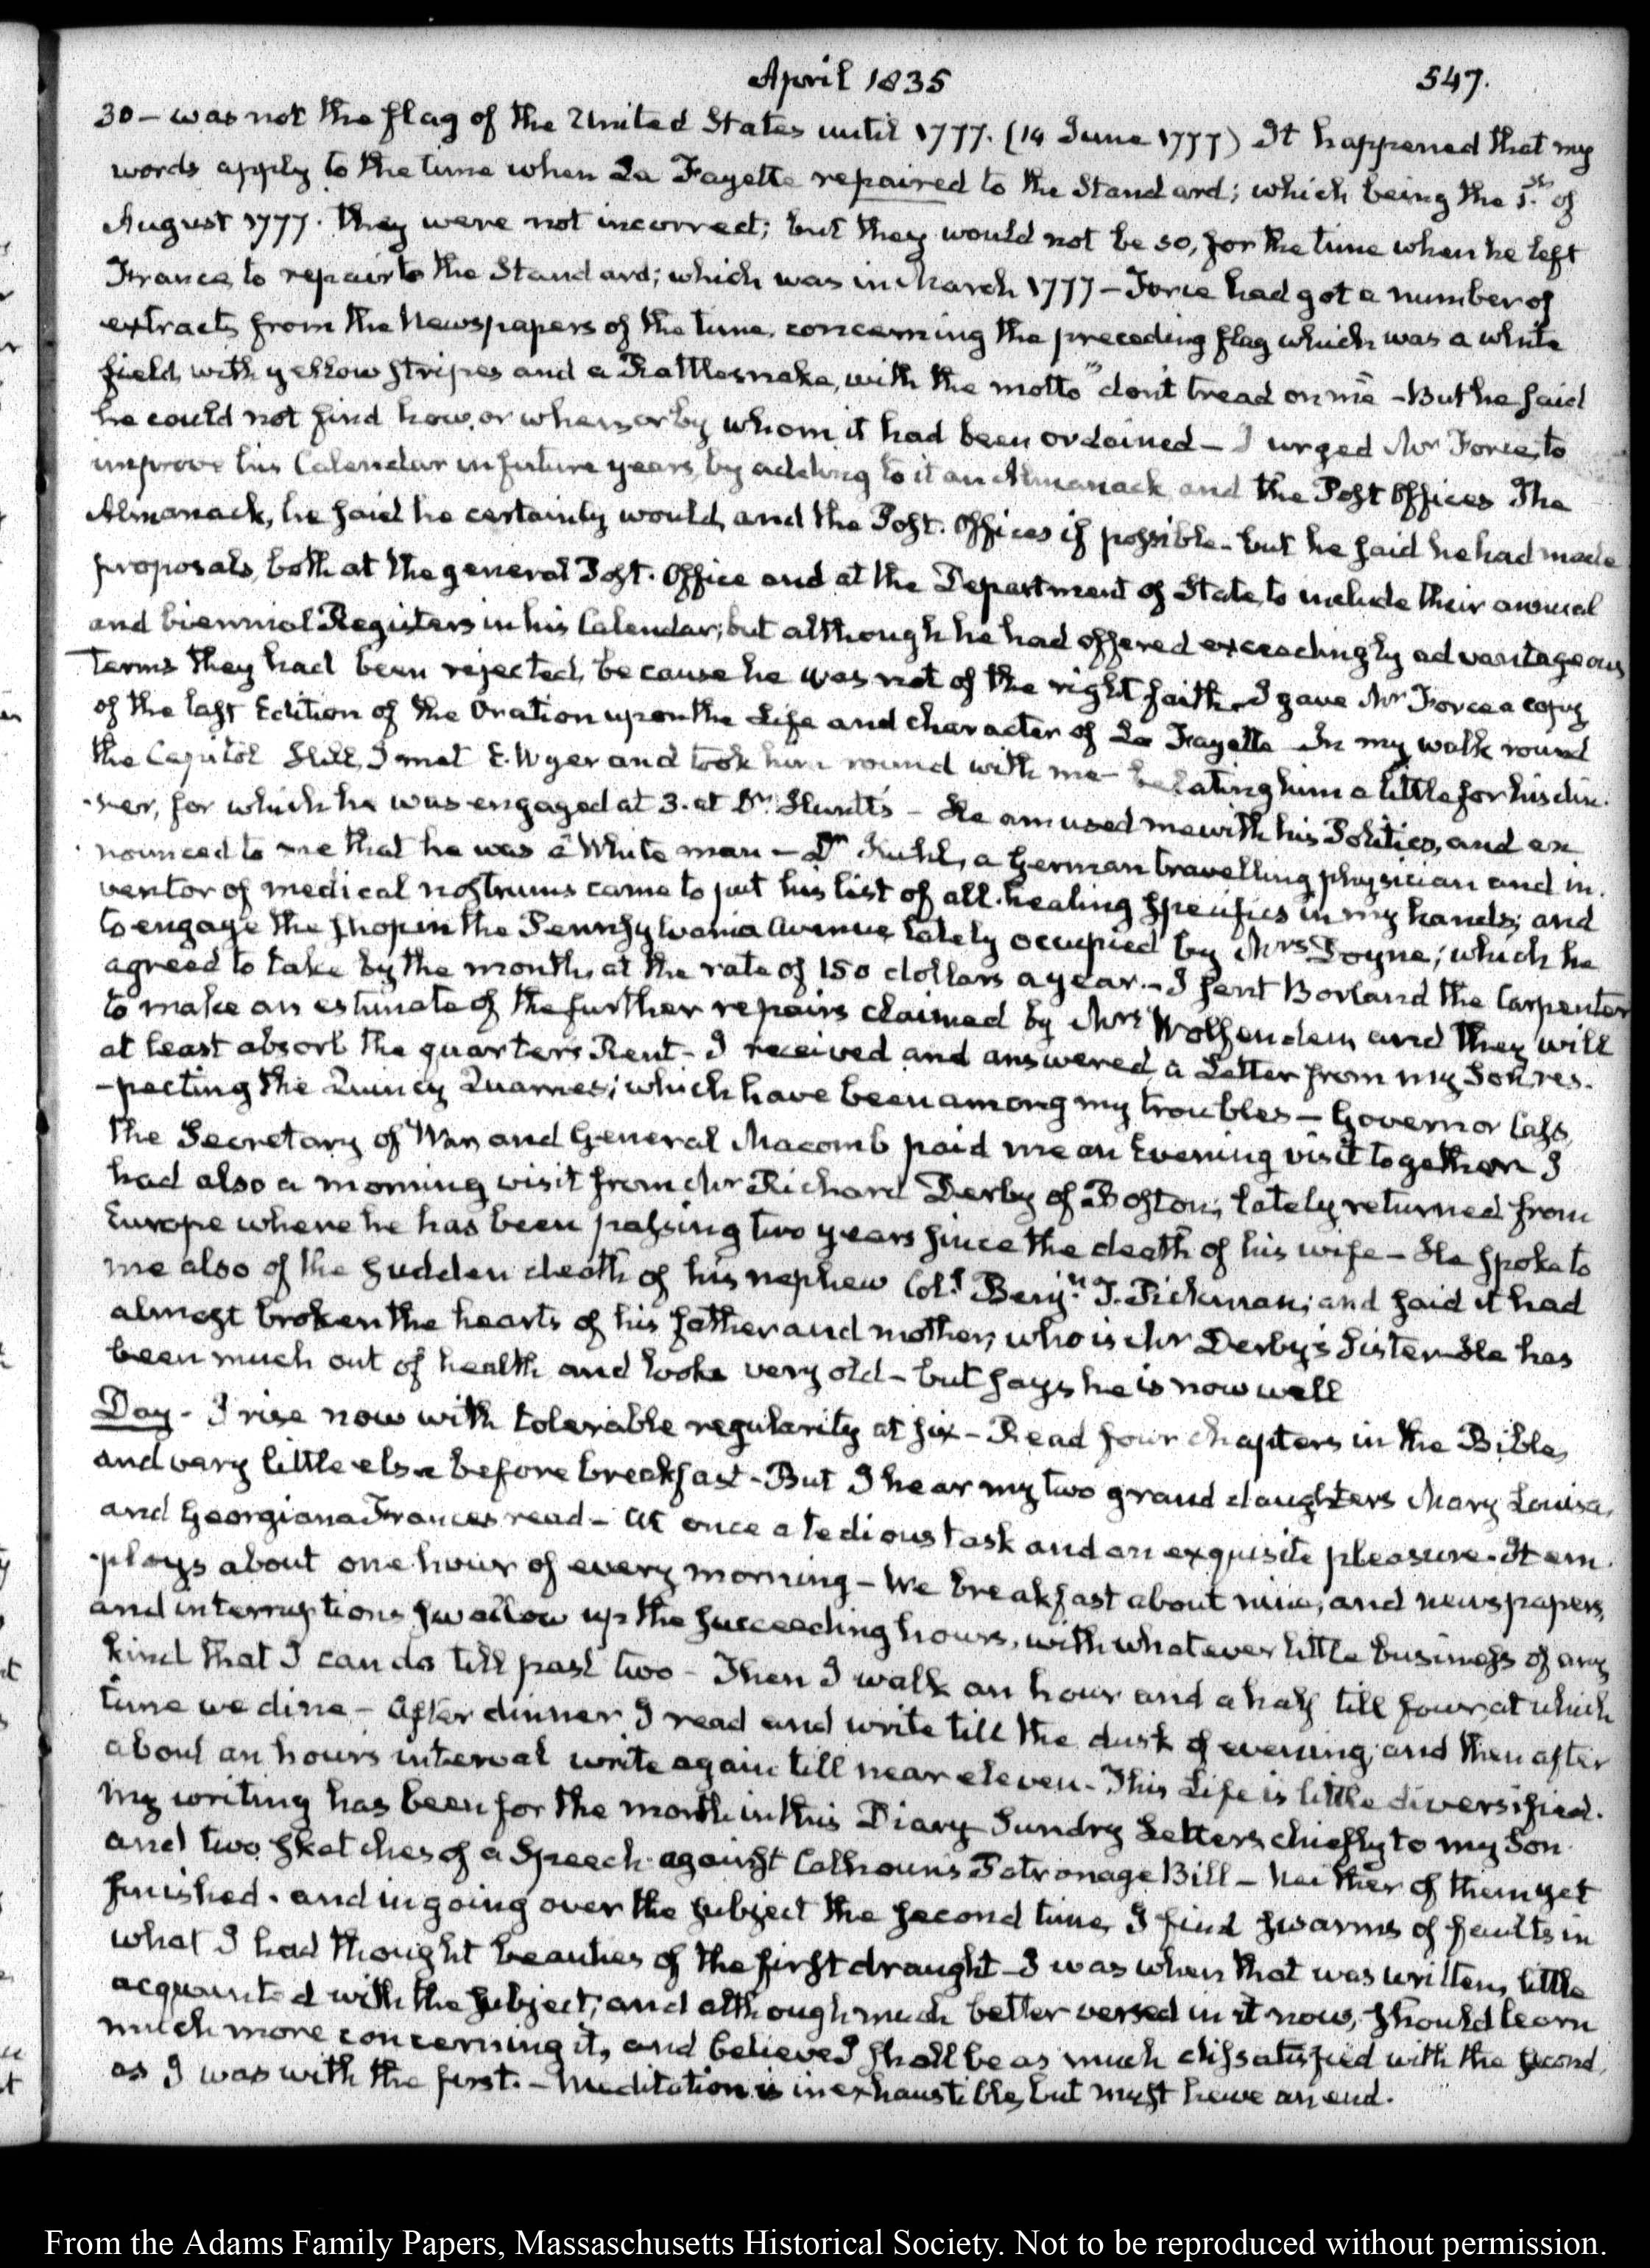 April 1835
547.
30 — was not the flag of the United States until 1777. (14 June 1777) It happened that my
words apply to the time when La Fayette repaired to the Standard; which being the 1.st of
August 1777. they were not incorrect; but they would not be so, for the time when he left
France, to repair to the Standard; which was in March 1777 — Force had got a number of
extracts from the Newspapers of the time, concerning the preceding flag which was a white
field, with yellow stripes and a Rattlesnake, with the motto "don't tread on me" — But he said
he could not find how, or when, or by whom, it had been ordained — I urged Mr Force, to
improve his Calendar in future years, by adding to it an Almanack, and the Post Offices The
Almanack, he said he certainly would, and the Post. Offices if possible — but he said he had made
proposals, both at the general Post. Office and at the Department of State, to include their annual
and biennial Registers in his Calendar; but although he had offered exceedingly advantageous
terms they had been rejected, because he was not of the right faith — I gave Mr Force a copy
of the last Edition of the Oration upon the Life and Character of La Fayette In my walk round
the Capitol Hill, I met E. Wyer and took him round with me — belating him a little for his din-
-ner, for which he was engaged at 3. at Dr. Hunt's — He amused me with his Politics, and an
nounced to me that he was a White man — Dr Kuhl, a German travelling physician and in-
ventor of medical nostrums came to put his list of all-healing specifics in my hands; and
to engage the shop in the Pennsylvania Avenue, lately occupied by Mrs Poyne; which he
agreed to take by the month, at the rate of 150 dollars a year. — I sent Borland the Carpenter
to make an estimate of the further repairs claimed by Mrs Wolfenden, and they will
at least absorb the quarter's Rent — I received and answered, a Letter from my Son, res-
-pecting the Quincy Quarries; which have been among my troubles — Governor Cass,
the Secretary of War, and General Macomb paid me an Evening visit together. I
had also a morning visit from Mr Richard Derby of Boston; lately returned from
Europe where he has been passing two years since the death of his wife — He spoke to
me also of the sudden death of his nephew Col.l Benj.n T. Pickman; and said it had
almost broken the hearts of his father and mother, who is Mr Derby's Sister — He has
been much out of health and looks very old — but says he is now well
Day — I rise now with tolerable regularity at six — Read four chapters in the Bible,
and very little else before breakfast — But I hear my two grand daughters Mary Louisa,
and Georgiana Frances read — At once a tedious task and an exquisite pleasure. It em-
-ploys about one hour of every morning — We breakfast about nine; and newspapers,
and interruptions swallow up the succeeding hours, with whatever little business of any
kind that I can do till past two — Then I walk an hour and a half till four, at which
time we dine — After dinner I read and write till the dusk of evening; and then after
about an hours interval write again till near eleven — This Life is little diversified.
My writing has been for the month in this Diary — Sundry Letters chiefly to my Son
and two sketches of a Speech against Calhoun's Patronage Bill — Neither of them yet
finished. and in going over the subject the second time, I find swarms of faults in
what I had thought beauties of the first draught — I was when that was written, little
acquainted with the subject; and although much better versed in it now, should learn
much more concerning it, and believe I shall be as much dissatisfied with the second,
as I was with the first. — Meditation is inexhaustible, but must have an end.
From the Adams Family Papers, Massaschusetts Historical Society. Not to be reproduced without permission.